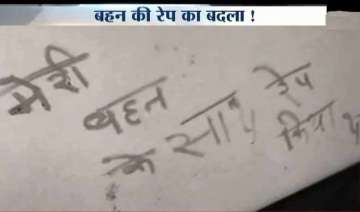 बहन की रेप का बदला !
मेरी बहन के साथ रेप किया